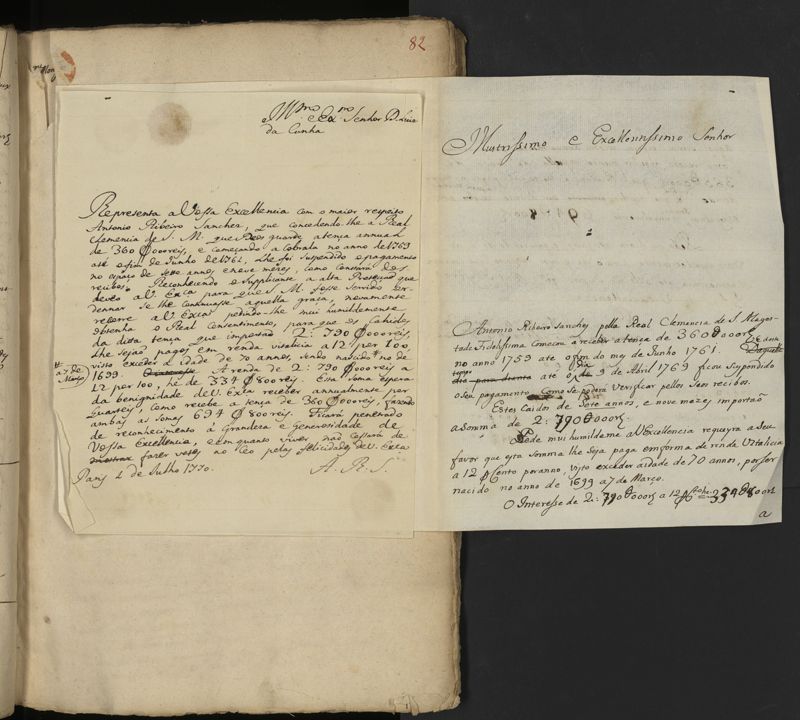 82
Illmo e Exmo Senhor D. Luis
da Cunha
Representa a Vossa Excellencia com o maior respeito
Antonio Ribeiro Sanches, que concedendo-lhe a Real
Clemencia de S. M. que Deos guarde a tença annual
de 360000 reis, e começando a cobrala no anno de 1759
até o fim de Junho de 1761, lhe foi suspendido o pagamento
no espaço de sette annos, e nove mezes, como constará dos
recibos. Reconhecendo o Supplicante a alta Protecçaõ que
deveo a V. Exca para que S. M. fosse servido or-
dennar se lhe continuasse aquella graça, novamente
recorre a V. Excia pedindo-lhe mui humildemente
obtenha o Real Consentimento, para que os Cahidos
da ditta tença que importaõ 2:790000 reis,
lhe sejaõ pagos em renda vitalicia a 12 per 100,
visto exceder a idade de 70 annos, sendo nascido no de
a 7 de
Março
1699. A renda de 2:790000 reis a
12 per 100, hé de 334800 reis. Esta soma espera
da benignidade de V. Exca receber annualmente per
quarteis, como recebe a tença de 360000 reis, fazendo
ambas as somas 694800 reis. Ficará penetrado
de reconhecimento á Grandeza e generosidade de
Vossa Excellencia, e em quanto viver naõ cessará de
fazer votos no Ceo pelas felicidades de V. Exca
Pariz 2 de Julho 1770.
A. R. S.
Illustrissimo e Excellentissimo Senhor
Antonio Ribeiro Sanches pella Real Clemencia de S. Mages-
tade Fidelissima começou a receber a tença de 360000 reis
no anno 1759 até o fim do mez de Junho 1761.
até o dia de Abril 1769 ficou suspendido
o seu pagamento Como se poderá Verificar pellos seos recibos.
Estes Caidos de Sete annos, e nove mezes importaõ
a Somma de 2:790000 reis
Pede mui humildeme a V Excellencia requeyra a Seu
favor que esta somma lhe seja paga em forma de renda Vitalicia
a 12 p Cento por anno, visto exceder a idade de 70 annos, por ser
nacido no anno de 1699 a 7 de Março.
O Interesse de 2:790000 reis a 12 p Cto he 334800 reis
a